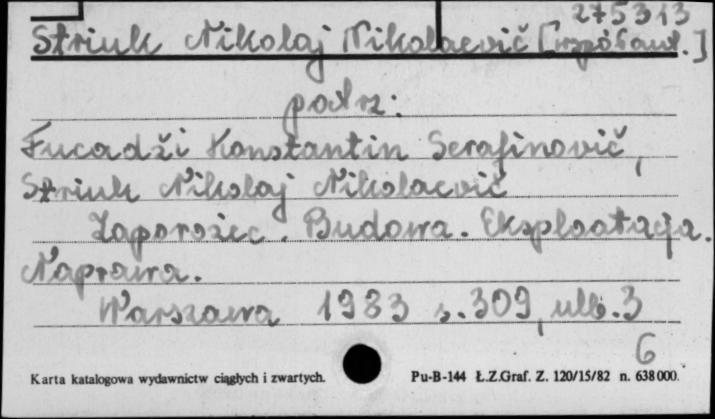 275313
Striuk Nikolaj Nikolaevič [współaut.]
patrz:
Fucadži Konstantin Serafinovič,
Striuk Nikolaj Nikolaevič
Zaporożec. Budowa. Eksploatacja.
Naprawa.
Warszawa 1983 s. 309, ulb. 3
6
Karta katalogowa wydawnictw ciągłych i zwartych. Pu-B-144 Ł.Z.Graf. Z. 120/15/82 n. 638000.